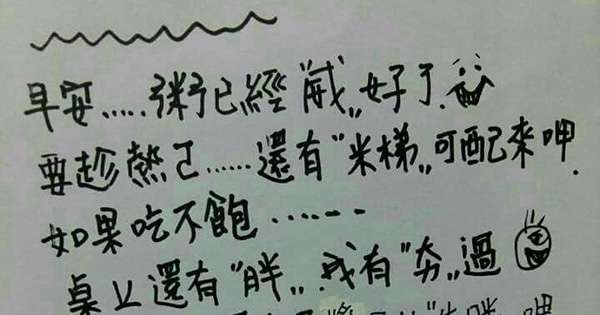 早安.....粥已經"威"好了.
要趁熱ㄛ......還有"米梯"可配來呷.
如果吃不飽.......
桌上還有"胖"..我有"夯"過